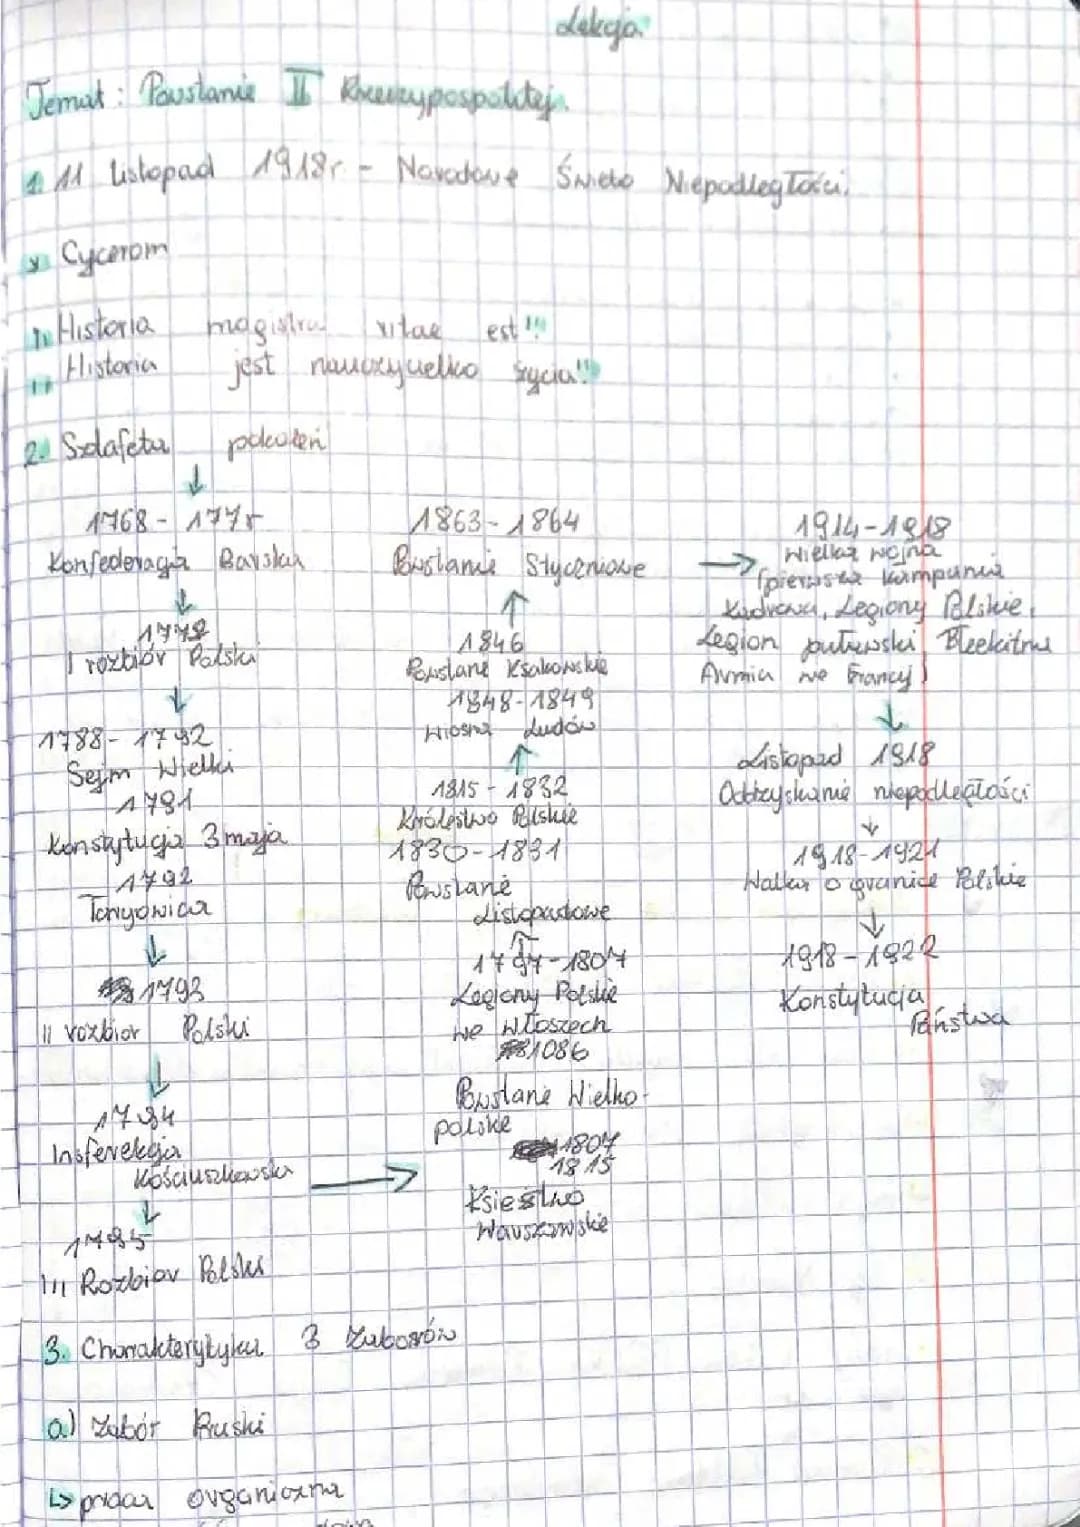 Lekcja
Temat: Powstanie II Rzeczypospolitej.
1. 11 listopad 1918r. - Narodowe Święto Niepodległości.
Cycerom
Historia magistra vitae est!!!
Historia jest nauczycielko życia!!
2. Sztafeta pokoleń
1768 - 177
Konfederagia Barska
1772
I rozbiór Polski
1788 - 1792
Sejm Wielki
1791
Konstytucja 3 maja
1792
Targowica
1793
II rozbior Polski
1794
Insferekcja
Kościuszkowska
1795
III Rozbior Polski
1863 - 1864
Powstanie Styczniowe
1846
Powstane Krakowskie
1848 - 1849
Wiosna Ludów
1815 - 1832
Królestwo Polskie
1830 - 1831
Powstane
Listopadowe
1797 - 1807
Legiony Polskie
we Włoszech
1086
Powstane Wielko-
polske
1807
1815
Księstwo
Warszawskie
1914 - 1918
Wielka wojna
(pierwsza kampania
Kadrowa, Legiony Polskie,
Legion puławski, Błekitna
Armia we Francji)
Listopad 1918
Odzyskanie niepodległości
1918 - 1921
Walka o granice Polskie
1918 - 1922
Konstytucja
Państwa
3. Charakterytyka 3 zaborów
a) Zabór Pruski
↳ praca organiczna